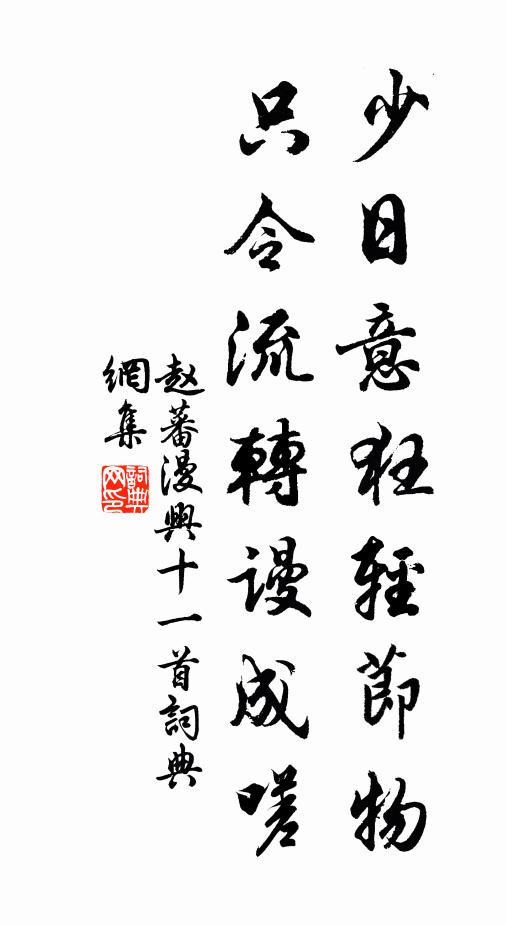 少日意狂輕節物
只令流轉謾成嗟
赵蕃漫興十一首詞典
網集
詞典網印